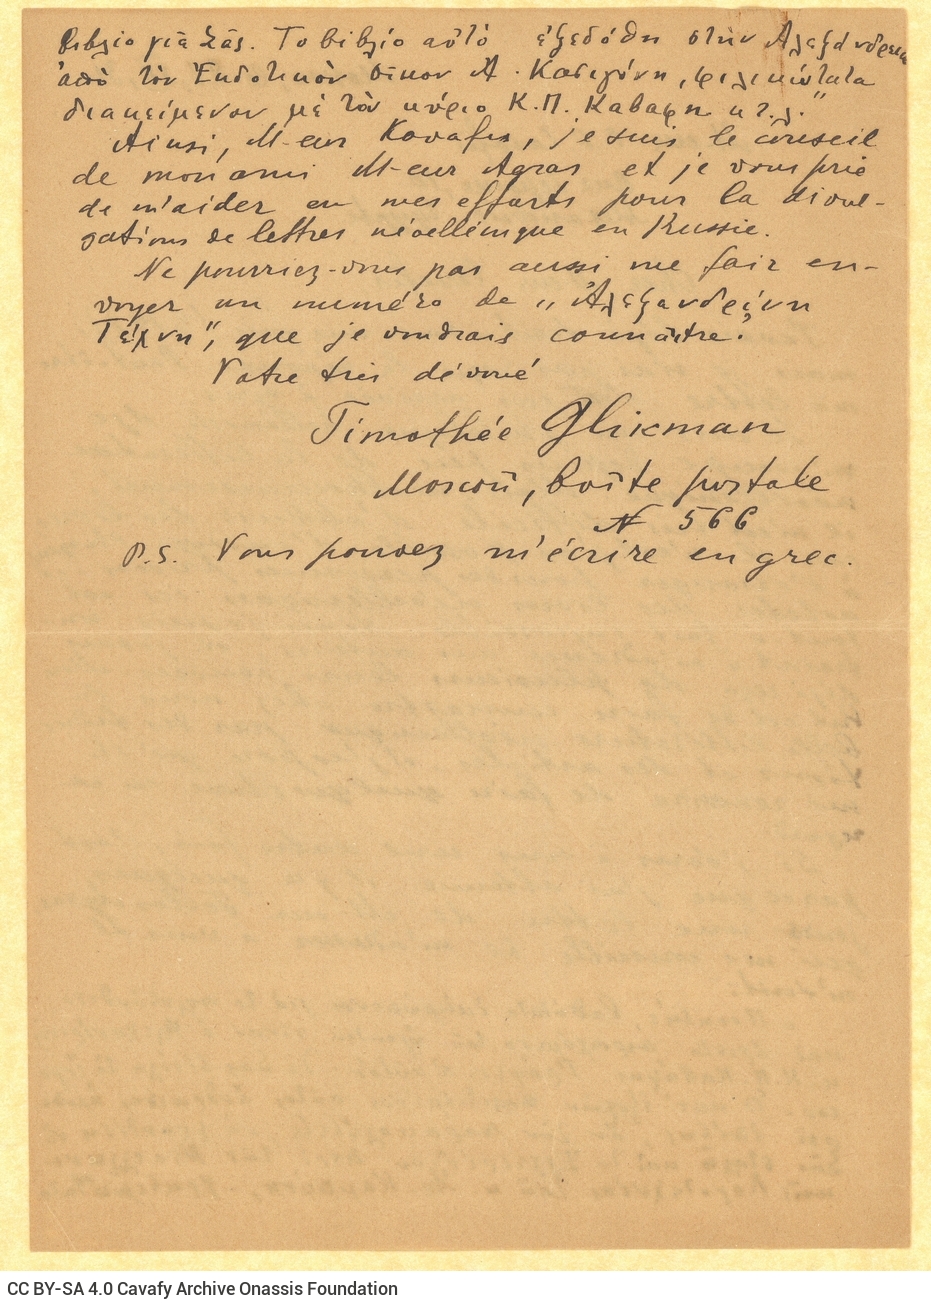 βιβλίο γιὰ Σᾶς. Το βιβλίο αὐτὸ ἐξεδόθη στὴν Ἀλεξάνδρεια
ἀπὸ τὸν Ἐκδοτικὸν οἶκον Α. Κασιγόνη, φιλικώτατα
διακείμενον μὲ τὸν κύριο Κ.Π. Καβαφη κ.τ.λ."
Ainsi, M-eur Kavafis, je suis le conseil
de mon ami M-eur Agras et je vous prie
de m'aider en mes efforts pour la divul-
gations de lettres néoellénique en Russie.
Ne pourriez-vous pas aussi me fair en-
voyer un numéro de „Ἀλεξανδρινη
Τέχνη", que je voudrais connaître?
Votre très dévoué
Timothée Glikman
Moscou, boîte postale
N 566
P.S. Vous pouvez m'écrire en grec.
CC BY-SA 4.0 Cavafy Archive Onassis Foundation